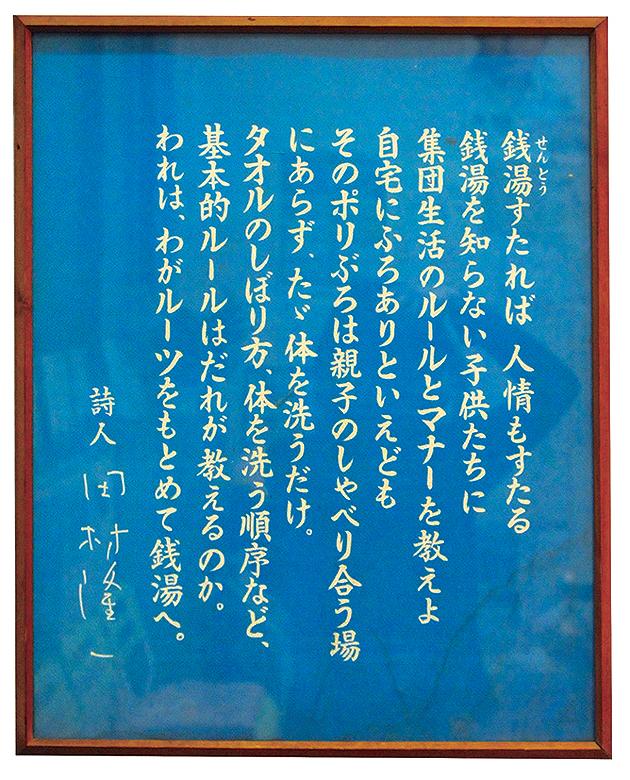 せんとう
銭湯すたれば 人情もすたる
銭湯を知らない子供たちに
集団生活のルールとマナーを教えよ
自宅にふろありといえども
そのポリぶろは親子のしゃべり合う場
にあらず、たゞ体を洗うだけ。
タオルのしぼり方、体を洗う順序など、
基本的ルールはだれが教えるのか。
われは、わがルーツをもとめて銭湯へ。
詩人 田村隆一